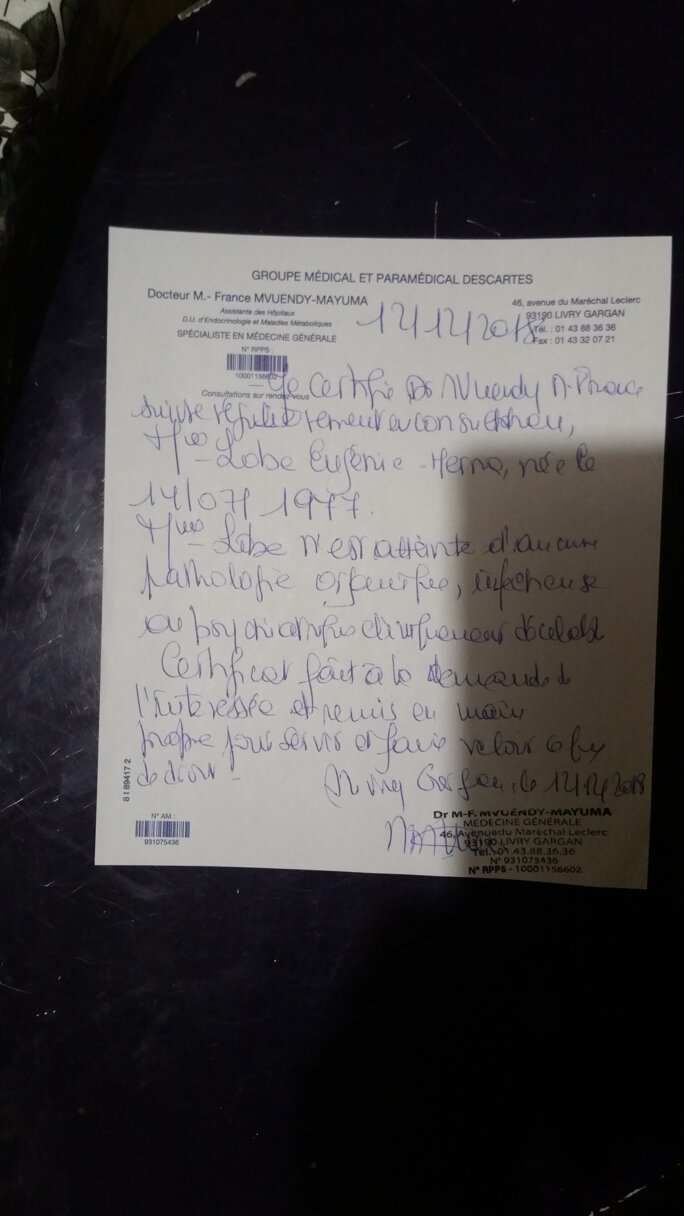 GROUPE MÉDICAL ET PARAMÉDICAL DESCARTES
Docteur M.- France MVUENDY-MAYUMA
Assistante des Hôpitaux
D.U. d'Endocrinologie et Maladies Métaboliques
SPÉCIALISTE EN MÉDECINE GÉNÉRALE
N° RPPS :
10001156602
Consultations sur rendez-vous
46, avenue du Maréchal Leclerc
93190 LIVRY GARGAN
Tél. : 01 43 88 36 36
Fax : 01 43 32 07 21
12/12/2018
Je certifie Dr Mvuendy M. France
suivre régulièrement en consultation,
Mme Lobe Eugénie, née le
14/07/1977.
Mme Lobe n'est atteinte d'aucune
pathologie organique, infectieuse
ou psychiatrique cliniquement décelable
Certificat fait à la demande de
l'intéressée et remis en main
propre pour servir et faire valoir
de droit
Livry Gargan, le 12/12/2018
8 I 89417 2
N° AM :
931075436
Dr M-F. MVUENDY-MAYUMA
MEDECINE GÉNÉRALE
46, Avenue du Maréchal Leclerc
93190 LIVRY GARGAN
Tél. 01.43.88.36.36
N° 931075436
N° RPPS - 10001156602